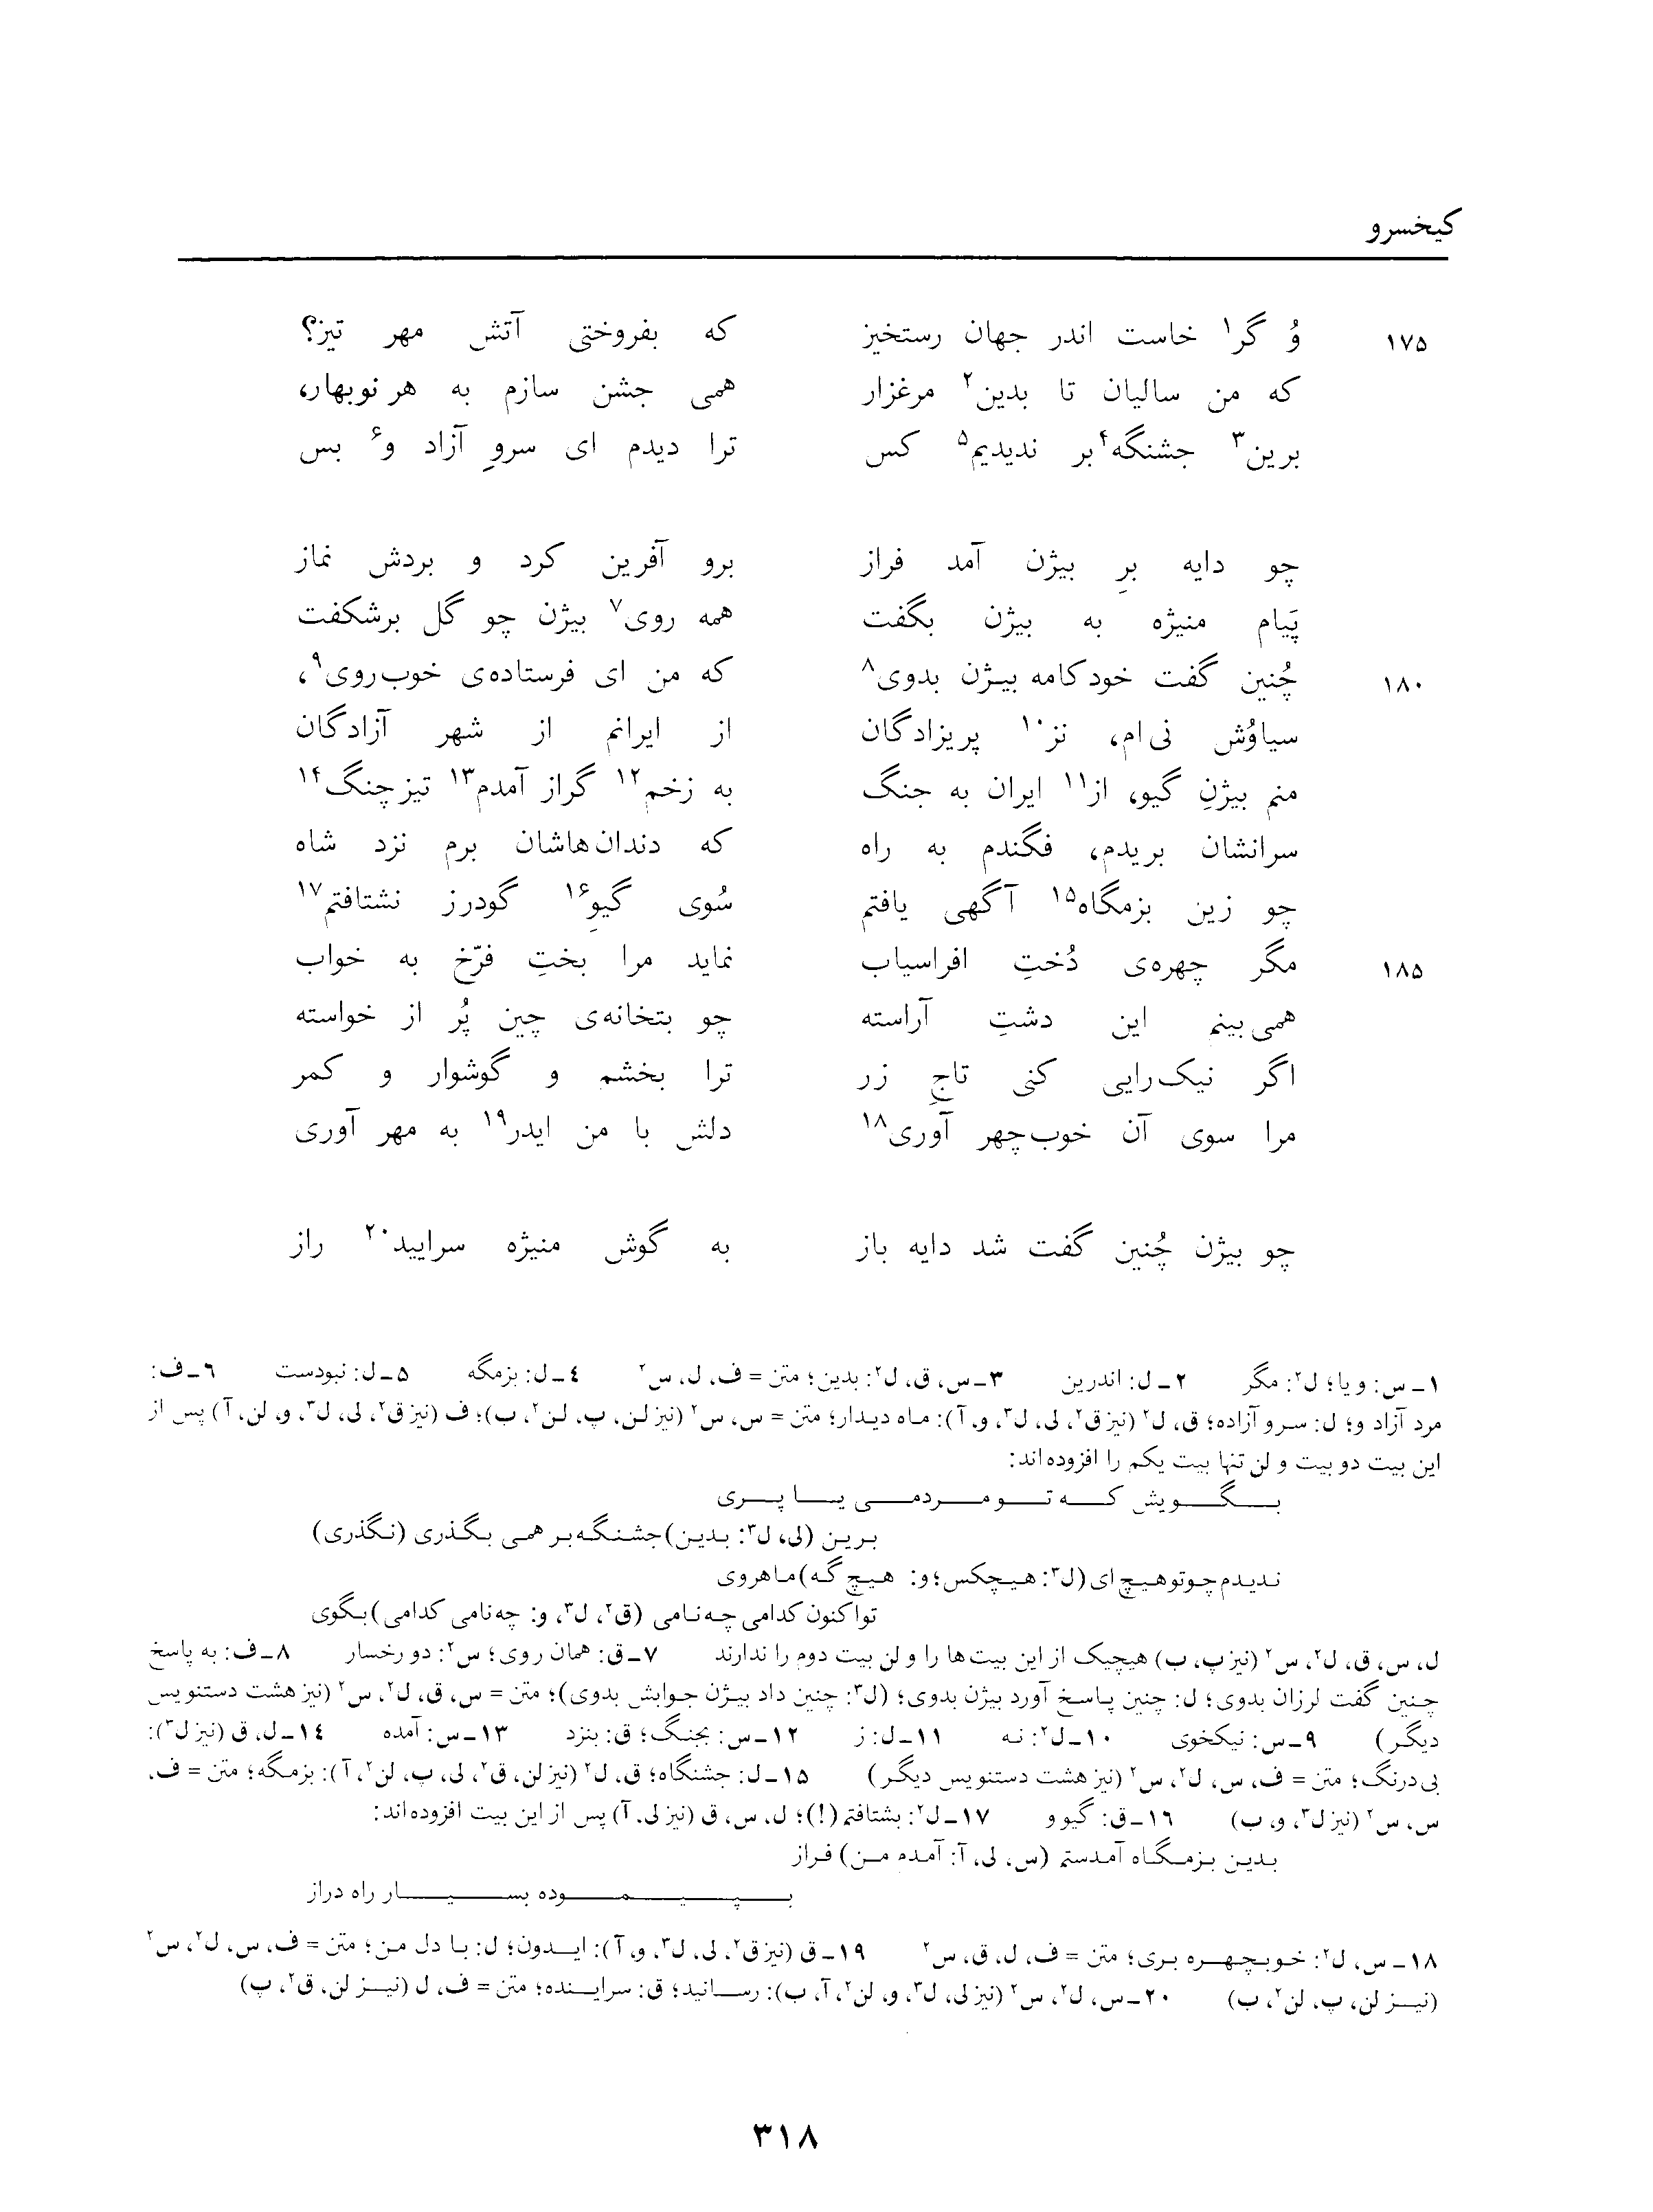 کیخسرو
۱۷۵ وُ گر۱ خاست اندر جهان رستخیز که بفروختی آتش مهر تیز؟
که من سالیان تا بدین۲ مرغزار همی جشن سازم به هر نوبهار،
برین۳ جشنگه۴ بر ندیدیم۵ کس ترا دیدم ای سروِ آزاد و۶ بس
چو دایه برِ بیژن آمد فراز برو آفرین کرد و بردش نماز
پَیام منیژه به بیژن بگفت همه روی۷ بیژن چو گل برشکفت
۱۸۰ چُنین گفت خودکامه بیژن بدوی۸ که من ای فرستاده‌ی خوب‌روی۹،
سیاوُش نی‌ام، نز۱۰ پریزادگان از ایرانم از شهر آزادگان
منم بیژنِ گیو، از۱۱ ایران به جنگ به زخم۱۲ گراز آمدم۱۳ تیزچنگ۱۴
سرانشان بریدم، فگندم به راه که دندان‌هاشان برم نزد شاه
چو زین بزمگاه۱۵ آگهی یافتم سُوی گیوِ۱۶ گودرز نشتافتم۱۷
۱۸۵ مگر چهره‌ی دُختِ افراسیاب نماید مرا بختِ فرّخ به خواب
همی‌بینم این دشتِ آراسته چو بتخانه‌ی چین پُر از خواسته
اگر نیک‌رایی کنی تاجِ زر ترا بخشم و گوشوار و کمر
مرا سوی آن خوب‌چهر آوری۱۸ دلش با من ایدر۱۹ به مهر آوری
چو بیژن چُنین گفت شد دایه باز به گوش منیژه سرایید۲۰ راز
۱ـ س: و یا؛ ل۲: مگر ۲ـ ل: اندرین ۳ـ س، ق، ل۲: بدین؛ متن = ف، ل، س۲ ٤ـ ل: بزمگه ۵ـ ل: نبودست ٦ـ ف:
مرد آزاد و؛ ل: سرو آزاده؛ ق، ل۲ (نیز ق۲، لی، ل۳، و، آ): ماه دیدار؛ متن = س، س۲ (نیز لن، پ، لن۲، ب)؛ ف (نیز ق۲، لی، ل۳، و، لن، آ) پس از
این بیت دو بیت و لن تنها بیت یکم را افزوده‌اند:
بگویش که تو مردمی یا پری
برین (لی، ل۳: بدین) جشنگه بر همی بگذری (نگذری)
ندیدم چو تو هیچ ای (ل۳: هیچکس؛ و: هیچ گه) ماهروی
تو اکنون کدامی چه نامی (ق۲، ل۳، و: چه نامی کدامی) بگوی
ل، س، ق، ل۲، س۲ (نیز پ، ب) هیچیک از این بیت‌ها را و لن بیت دوم را ندارند ۷ـ ق: همان روی؛ س۲: دو رخسار ۸ـ ف: به پاسخ
چنین گفت لرزان بدوی؛ ل: چنین پاسخ آورد بیژن بدوی؛ (ل۳: چنین داد بیژن جوابش بدوی)؛ متن = س، ق، ل۲، س۲ (نیز هشت دستنویس
دیگر) ۹ـ س: نیکخوی ۱۰ـ ل۲: نه ۱۱ـ ل: ز ۱۲ـ س: بجنگ؛ ق: بنزد ۱۳ـ س: آمده ۱٤ـ ل، ق (نیز ل۳):
بی‌درنگ؛ متن = ف، س، ل۲، س۲ (نیز هشت دستنویس دیگر) ۱۵ـ ل: جشنگاه؛ ق، ل۲ (نیز لن، ق۲، لی، پ، لن۲، آ): بزمگه؛ متن = ف،
س، س۲ (نیز ل۳، و، ب) ۱٦ـ ق: گیو و ۱۷ـ ل۲: بشتافتم (!)؛ ل، س، ق (نیز لی، آ) پس از این بیت افزوده‌اند:
بدین بزمگاه آمدستم (س، لی، آ: آمدم من) فراز
بپیموده بسیار راه دراز
۱۸ـ س، ل۲: خوبچهره بری؛ متن = ف، ل، ق، س۲ ۱۹ـ ق (نیز ق۲، لی، ل۳، و، آ): ایدون؛ ل: با دل من؛ متن = ف، س، ل۲، س۲
(نیز لن، پ، لن۲، ب) ۲۰ـ س، ل۲، س۲ (نیز لی، ل۳، و، لن۲، آ، ب): رسانید؛ ق: سراینده؛ متن = ف، ل (نیز لن، ق۲، پ)
۳۱۸